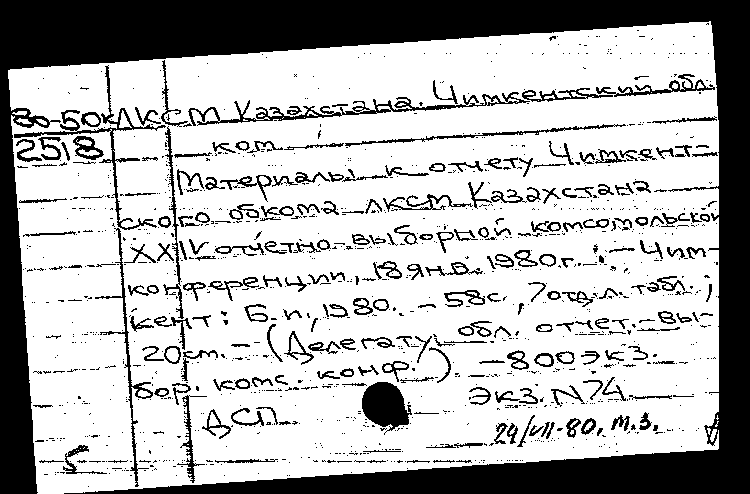 80-50к ЛКСМ Казахстана. Чимкентский обл.
2518 ком
Материалы к отчету Чимкент-
ского обкома ЛКСМ Казахстана
XXIV отчетно-выборной комсомольской
конференции, 18 янв. 1980г. :- Чим-
кент: Б.и., 1980. - 58с., 7 отд.л. табл.;
20см. - (Делегату обл. отчет.-вы-
бор. комс. конф.). - 800 экз.
ДСП экз. N74
5 24/VII-80. м.з.